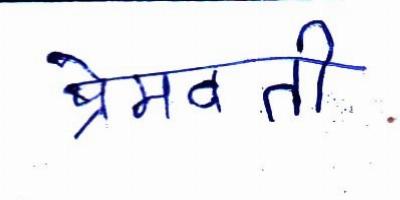 प्रेमवती